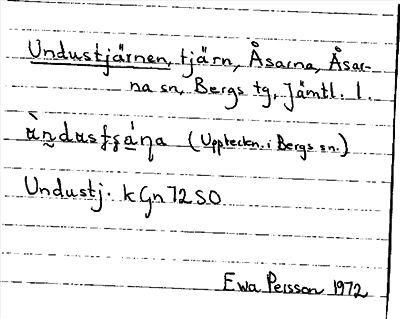 Undustjärnen, tjärn, Åsarna, Åsar-
na sn, Bergs tg, Jämtl. l.
(Uppteckn. i Bergs sn.)
Undustj. k Gn 72 SO
Ewa Persson 1972